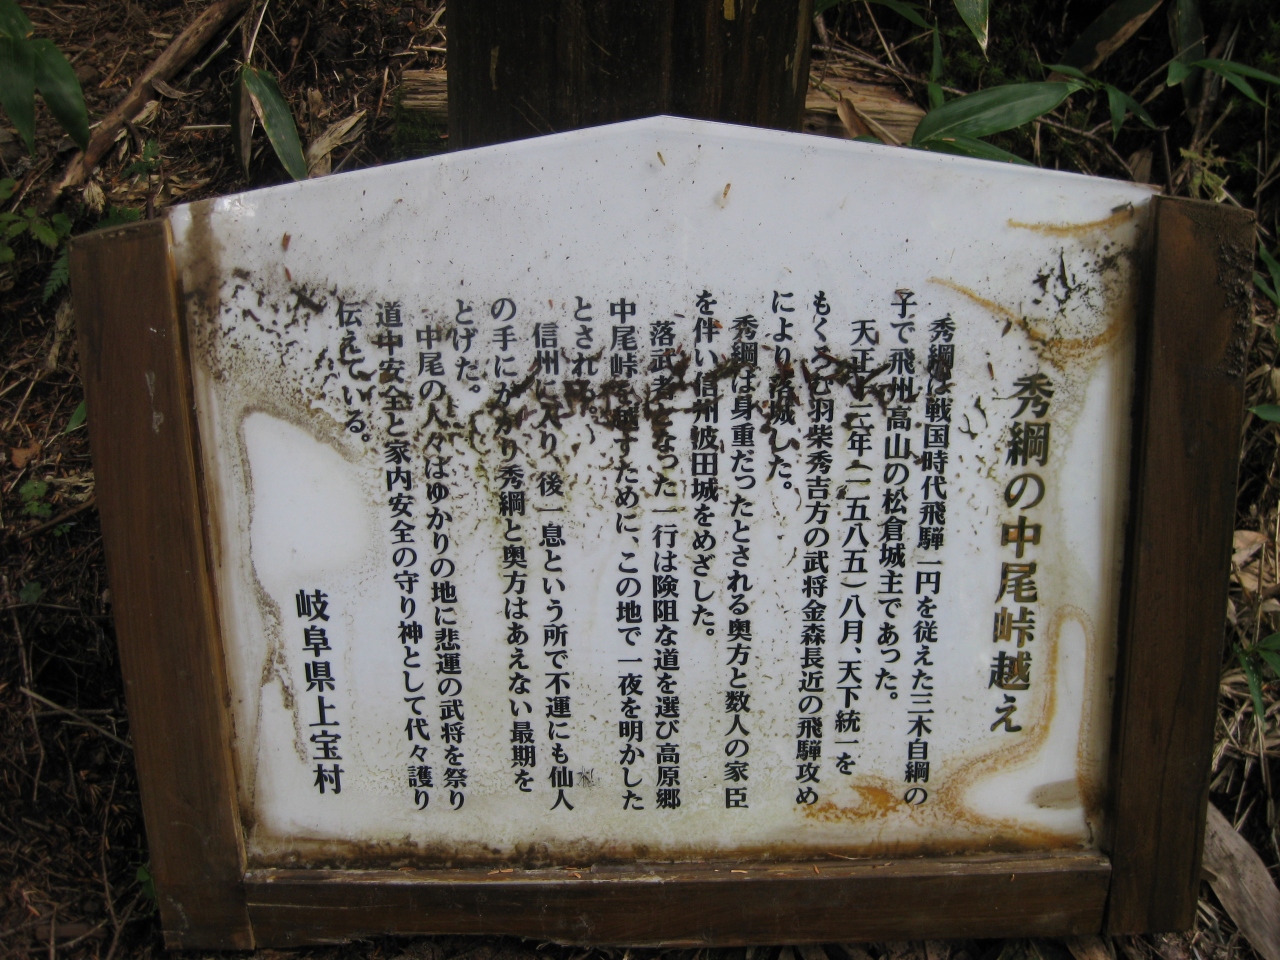 秀綱の中尾峠越え
秀綱は戦国時代飛騨一円を従えた三木自綱の
子で飛州高山の松倉城主であった。
天正十三年(一五八五)八月、天下統一を
もくろむ羽柴秀吉方の武将金森長近の飛騨攻め
により落城した。
秀綱は身重だったとされる奥方と数人の家臣
を伴い信州波田城をめざした。
落武者となった一行は険阻な道を選び高原郷
中尾峠を越すために、この地で一夜を明かした
とされ
信州に入り、後一息という所で不運にも仙人
の手にかかり秀綱と奥方はあえない最期を
とげた。
中尾の人々はゆかりの地に悲運の武将を祭り
道中安全と家内安全の守り神として代々護り
伝えている。
岐阜県上宝村